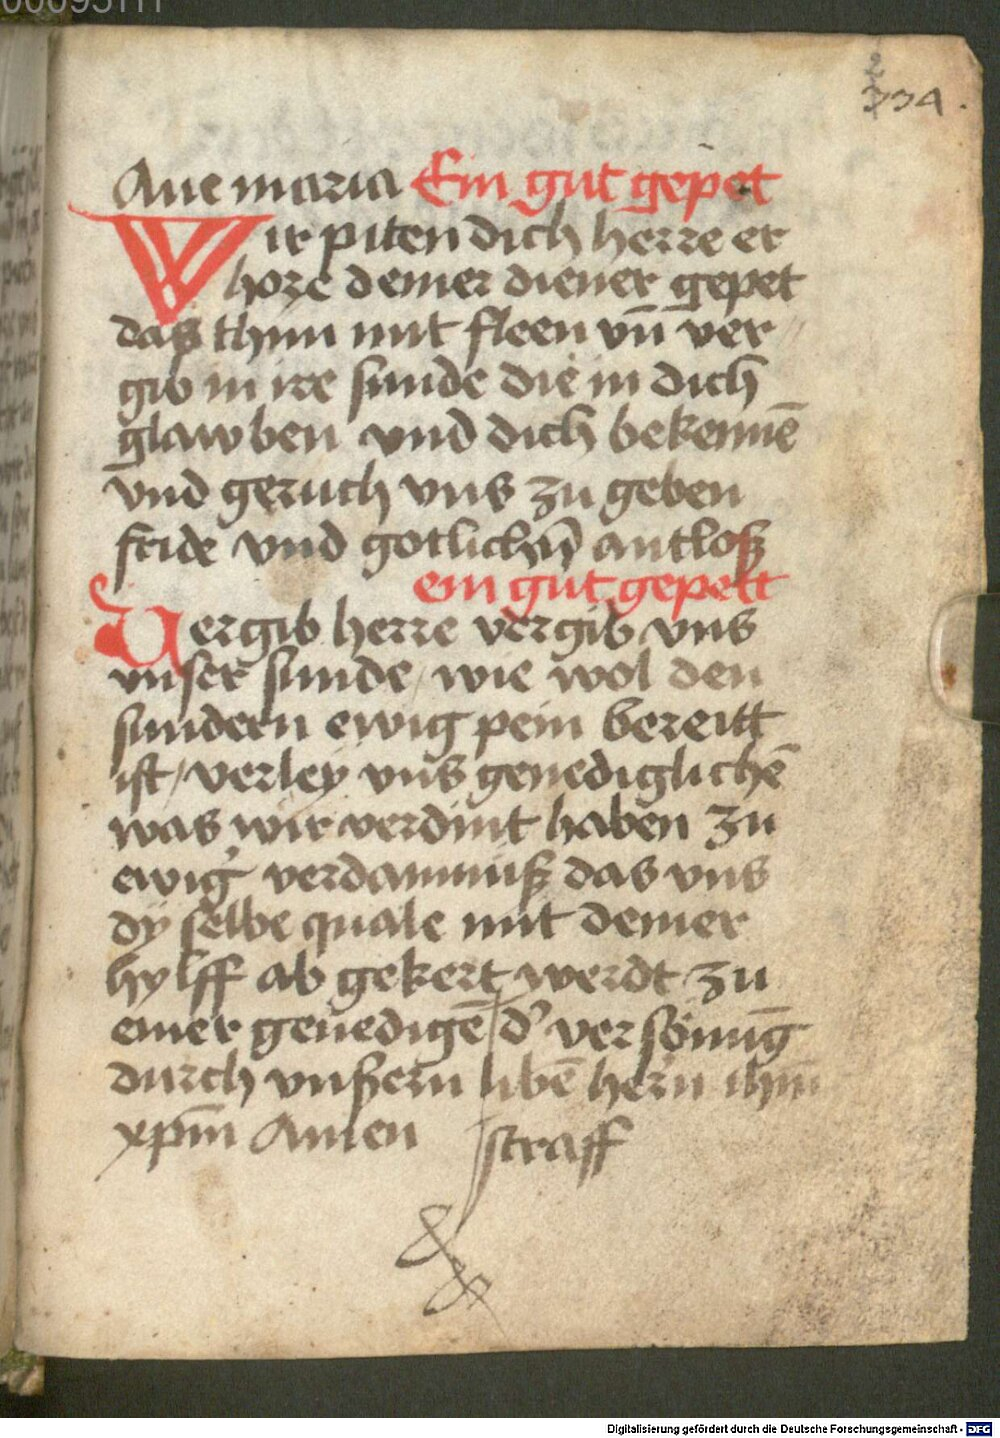 234
Aue maria Ein gut gepet
Wir piten dich herre er
hore deiner diener gepet
das thun mit fleen vn̄ ver
gib in ire sunde die in dich
glawben vnd dich bekennē
vnd geruch vns zu geben
fride vnd gotlichen antlosz
ein gut gepett
Vergib herre vergib vns
vnser sunde / wie wol den
sundern ewig pein bereitt
ist / verley vns genediglichē
was wir verdint haben zu
ewig' verdamnusz das vns
dy selbe quale mit deiner
hylff ab gekert werdt zu
einer genedigē / d' versönūg
durch vnszern libē hern ihm̄
xpm̄ Amen straff
Digitalisierung gefördert durch die Deutsche Forschungsgemeinschaft - DFG